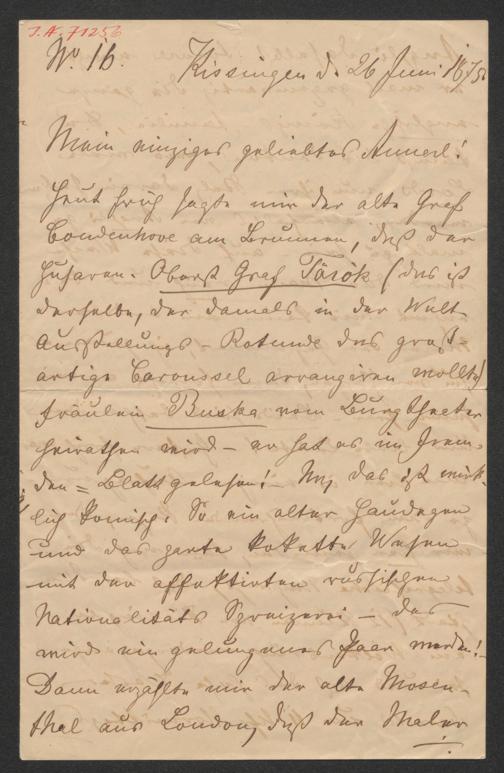 I.N. 71256
No. 16. Kissingen d. 26 Juni 1875.
Mein einziges geliebtes Annerl!
Heut früh sagte mir der alte Graf
Coudenhove am Brunnen, daß der
Husaren-Oberst Graf Török (das ist
derselbe, der damals in der Welt-
Ausstellungs-Rotunde das groß-
artige Caroussel arrangiren wollte)
Fräulein Buska vom Burgtheater
heirathen wird – er hat es im Frem-
den=Blatt gelesen! – Na, das ist wirk-
lich komisch. So ein alter Haudegen
und das zarte kokette Wesen
mit der affektirten russischen
Nationalitäts – das
wird ein gelungenes Paar werden! –
Dann erzählte mir der alte Mosen-
thal aus London, daß der Maler